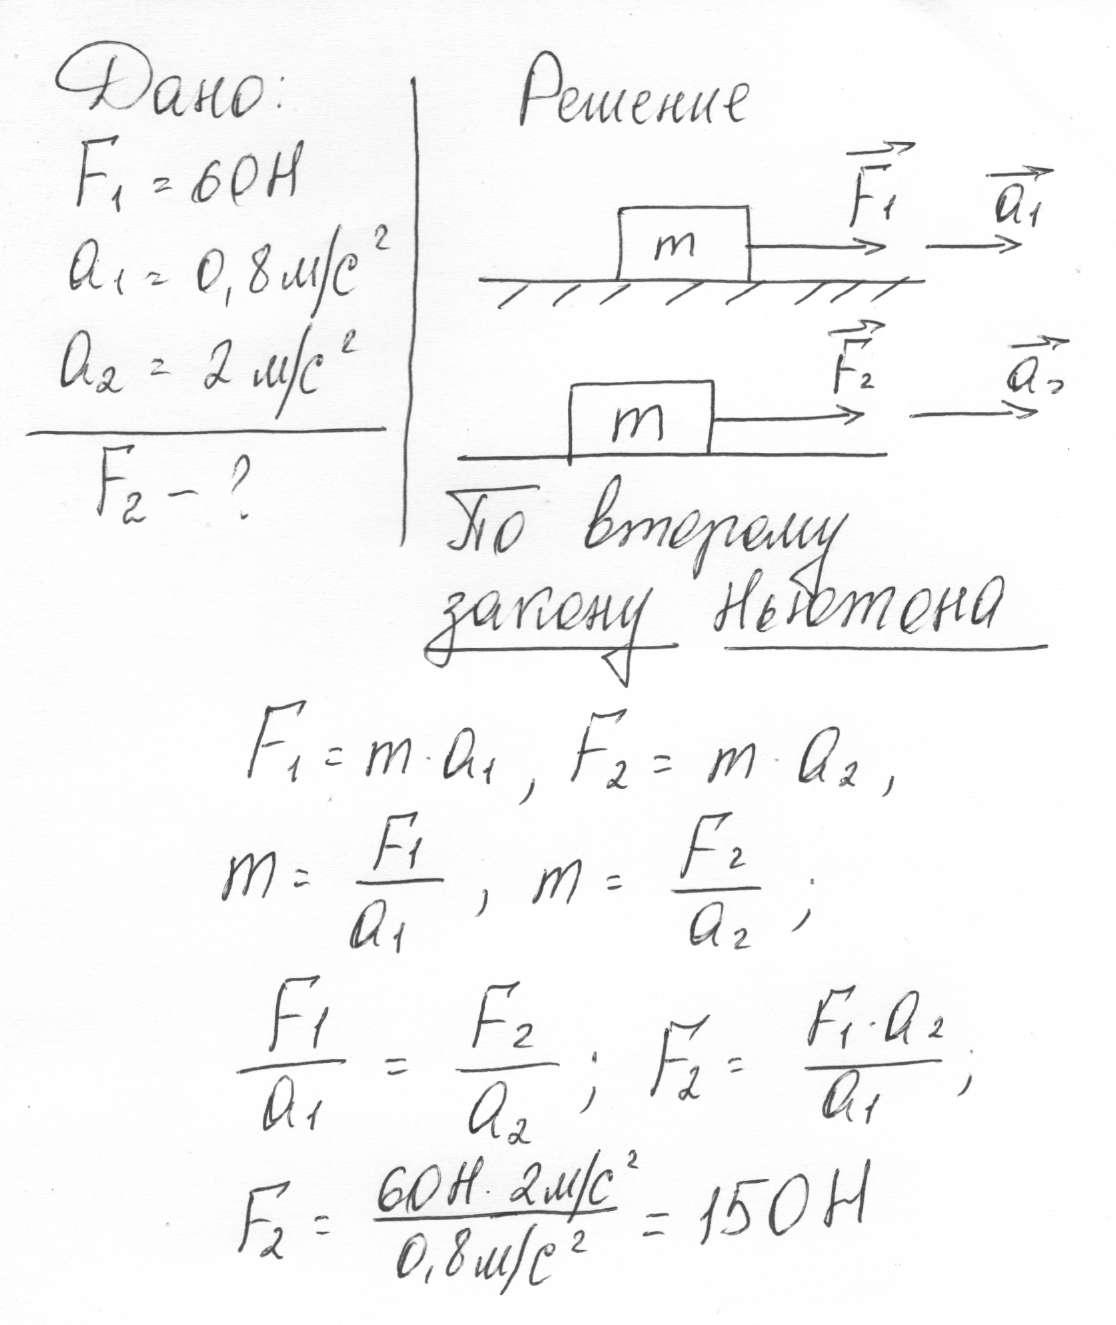 Дано:
F₁ = 60Н
a₁ = 0,8 м/с²
a₂ = 2 м/с²
F₂ – ?
Решение
m F₁ a₁
m F₂ a₂
По второму
закону Ньютона
F₁ = m · a₁, F₂ = m · a₂,
m = F₁/a₁, m = F₂/a₂;
F₁/a₁ = F₂/a₂; F₂ = F₁·a₂/a₁;
F₂ = 60Н · 2м/с² / 0,8м/с² = 150Н